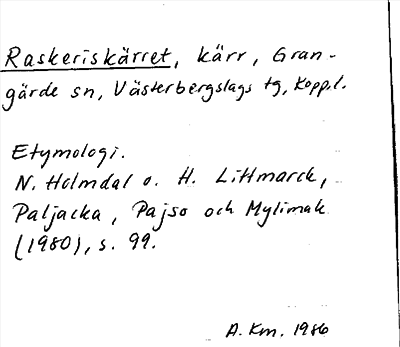 Raskeriskärret, kärr, Gran-
gärde sn, Västerbergslags tg, Kopp.l.
Etymologi.
N. Holmdal o. H. Littmarck,
Paljacka, Pajso och Mylimak
(1980), s. 99.
A. Km. 1986